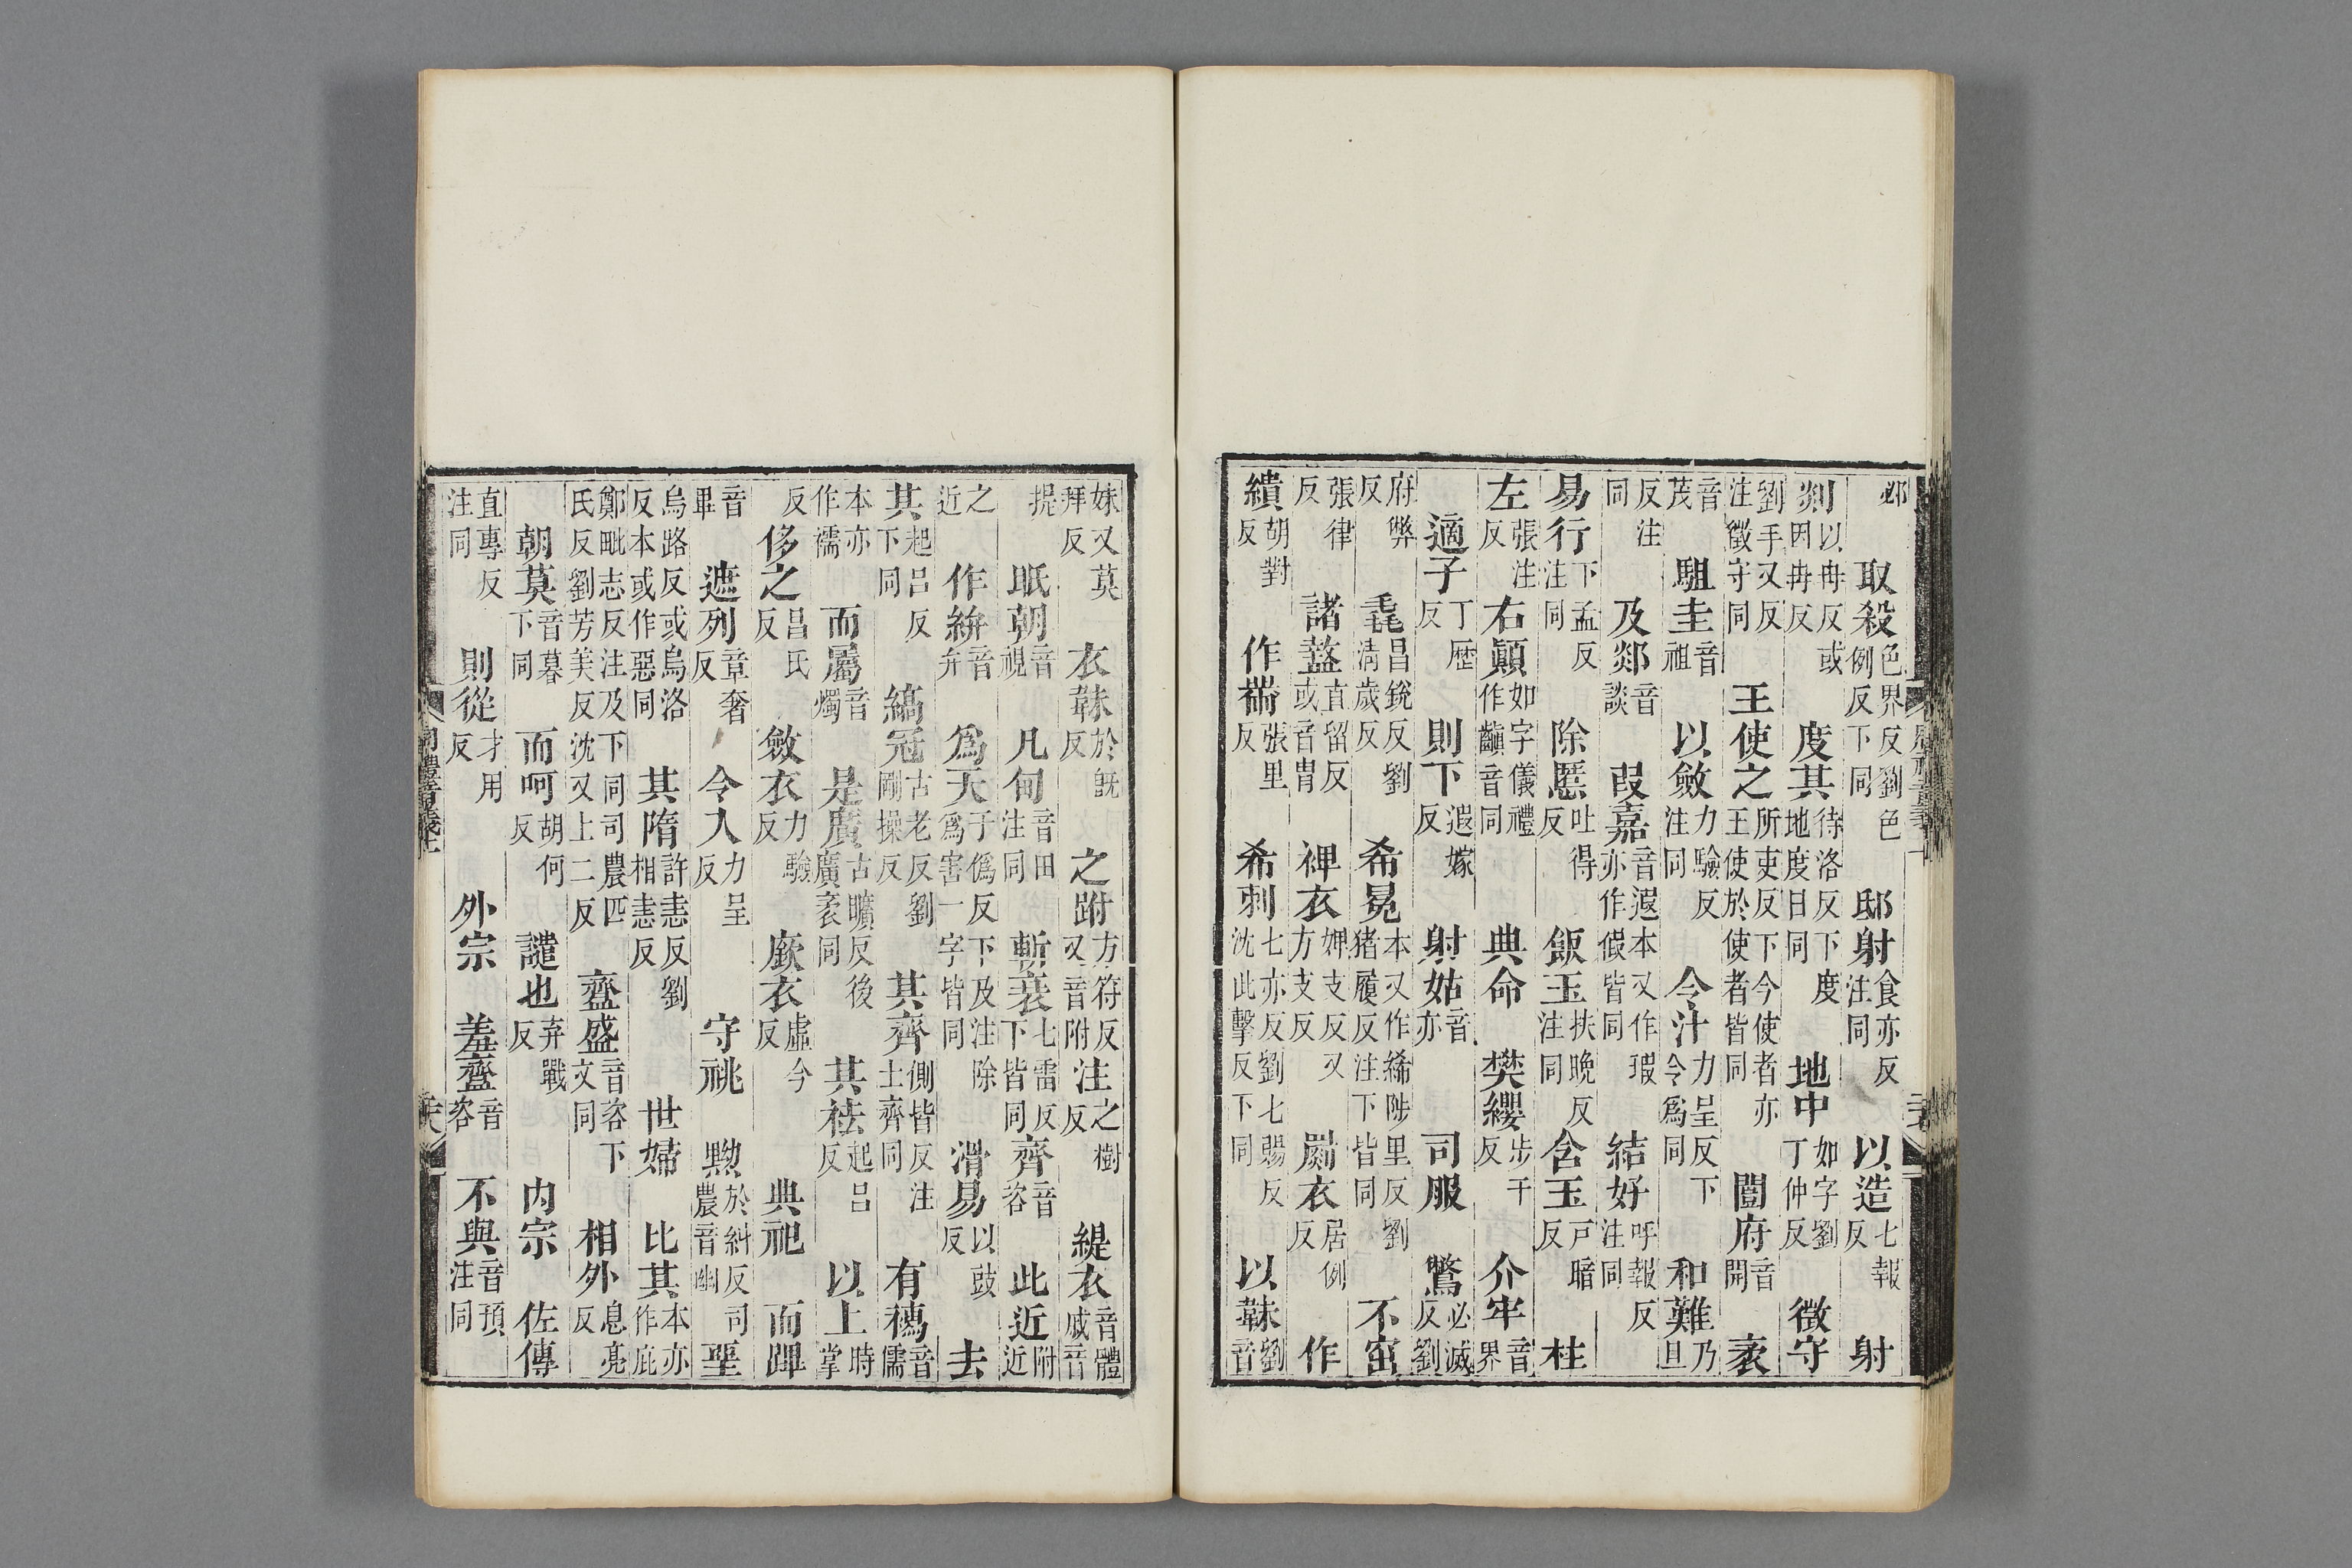 邲 取殺色界反劉色例反下同 邸射食亦反注同 以造七報反 射
剡以冉反或因冉反 度其待洛反下度地度日同 地中如字劉丁仲反 徵守
劉手又反注徵守同 王使之所吏反下今使者亦王使於使者皆同 闓府音開 袤
音茂 駔圭音祖 以斂力驗反注同 令汁力呈反下令爲同 和難乃旦
反注同 及郯音談 叚嘉音遐本又作瑕亦作假皆同 結好呼報反注同
易行下孟反注同 除慝吐得反 飯玉扶晚反注同 含玉戸暗反 柱
左張注反 右顚如字儀禮作齻音同 典命 樊纓步干反 介牢音界
適子丁歴反 則下遐嫁反 射姑音亦 司服 鷩必滅反劉
府弊反 毳昌銳反劉淸歲反 希冕本又作絺陟里反劉猪履反注下皆同 不窋
張律反 諸盩直留反或音冑 裨衣婢支反又方支反 罽衣居例反 作
繢胡對反 作黹張里反 希刺七亦反劉七賜反沈此擊反下同 以韎劉音
妹又莫拜反 衣韎於旣反 之跗方符反又音附 注之樹反 緹衣音體戚音
提 眂朝音視 凡甸音田注同 斬衰七雷反下皆同 齊音咨 此近附近
之近 作絣音弁 爲天于僞反下及注除爲害一字皆同 滑易以豉反 去
其起呂反下同 縞冠古老反劉剛操反 其齊側皆反注士齊同 有襦音儒
本亦作襦 而屬音燭 是廣古曠反後廣袤同 其袪起呂反 以上時掌
反 侈之昌氏反 斂衣力驗反 廞衣虛今反 典祀 而蹕
音畢 遮列章奢反 令入力呈反 守祧 黝於糾反司農音幽 堊
烏路反或烏洛反本或作惡同 其隋許恚反劉相恚反 世婦 比其本亦作庇
鄭毗志反注及下同司農匹氏反劉芳美反沈又上二反 齍盛音咨下文同 相外息亮反
朝莫音暮下同 而呵胡何反 譴也弃戰反 内宗 佐傳
直專反注同 則從才用反 外宗 羞齍音咨 不與音預注同